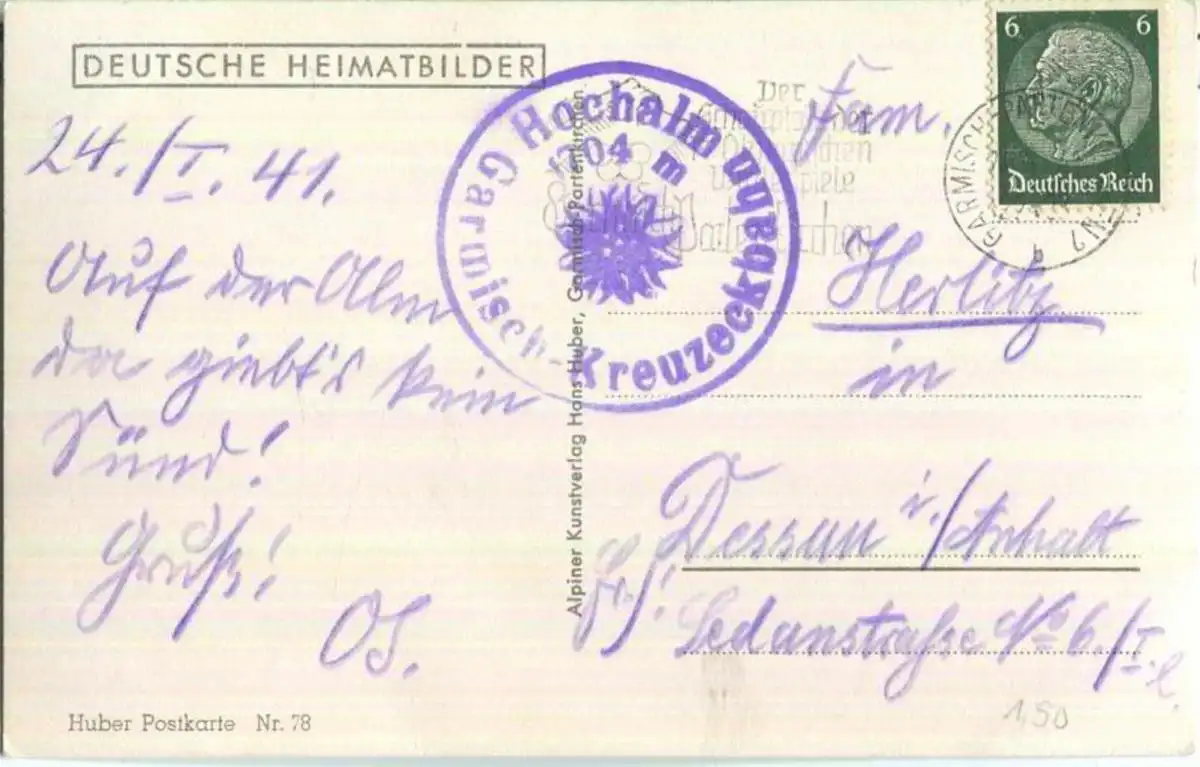 DEUTSCHE HEIMATBILDER
24./I. 41.
Auf der Alm
da giebt's kein
Sünd!
Gruß!
OS.
Huber Postkarte Nr. 78
Alpiner Kunstverlag Hans Huber, Garmisch-Partenkirchen.
Hochalm
04 m
Garmisch-Kreuzeckbahn
Der
6 6
Deutsches Reich
GARMISCH-PARTENKIRCHEN
Fam.
Herlitz
in
Dessau i./Anhalt
Sedanstraße No 6./I. l.
1,50